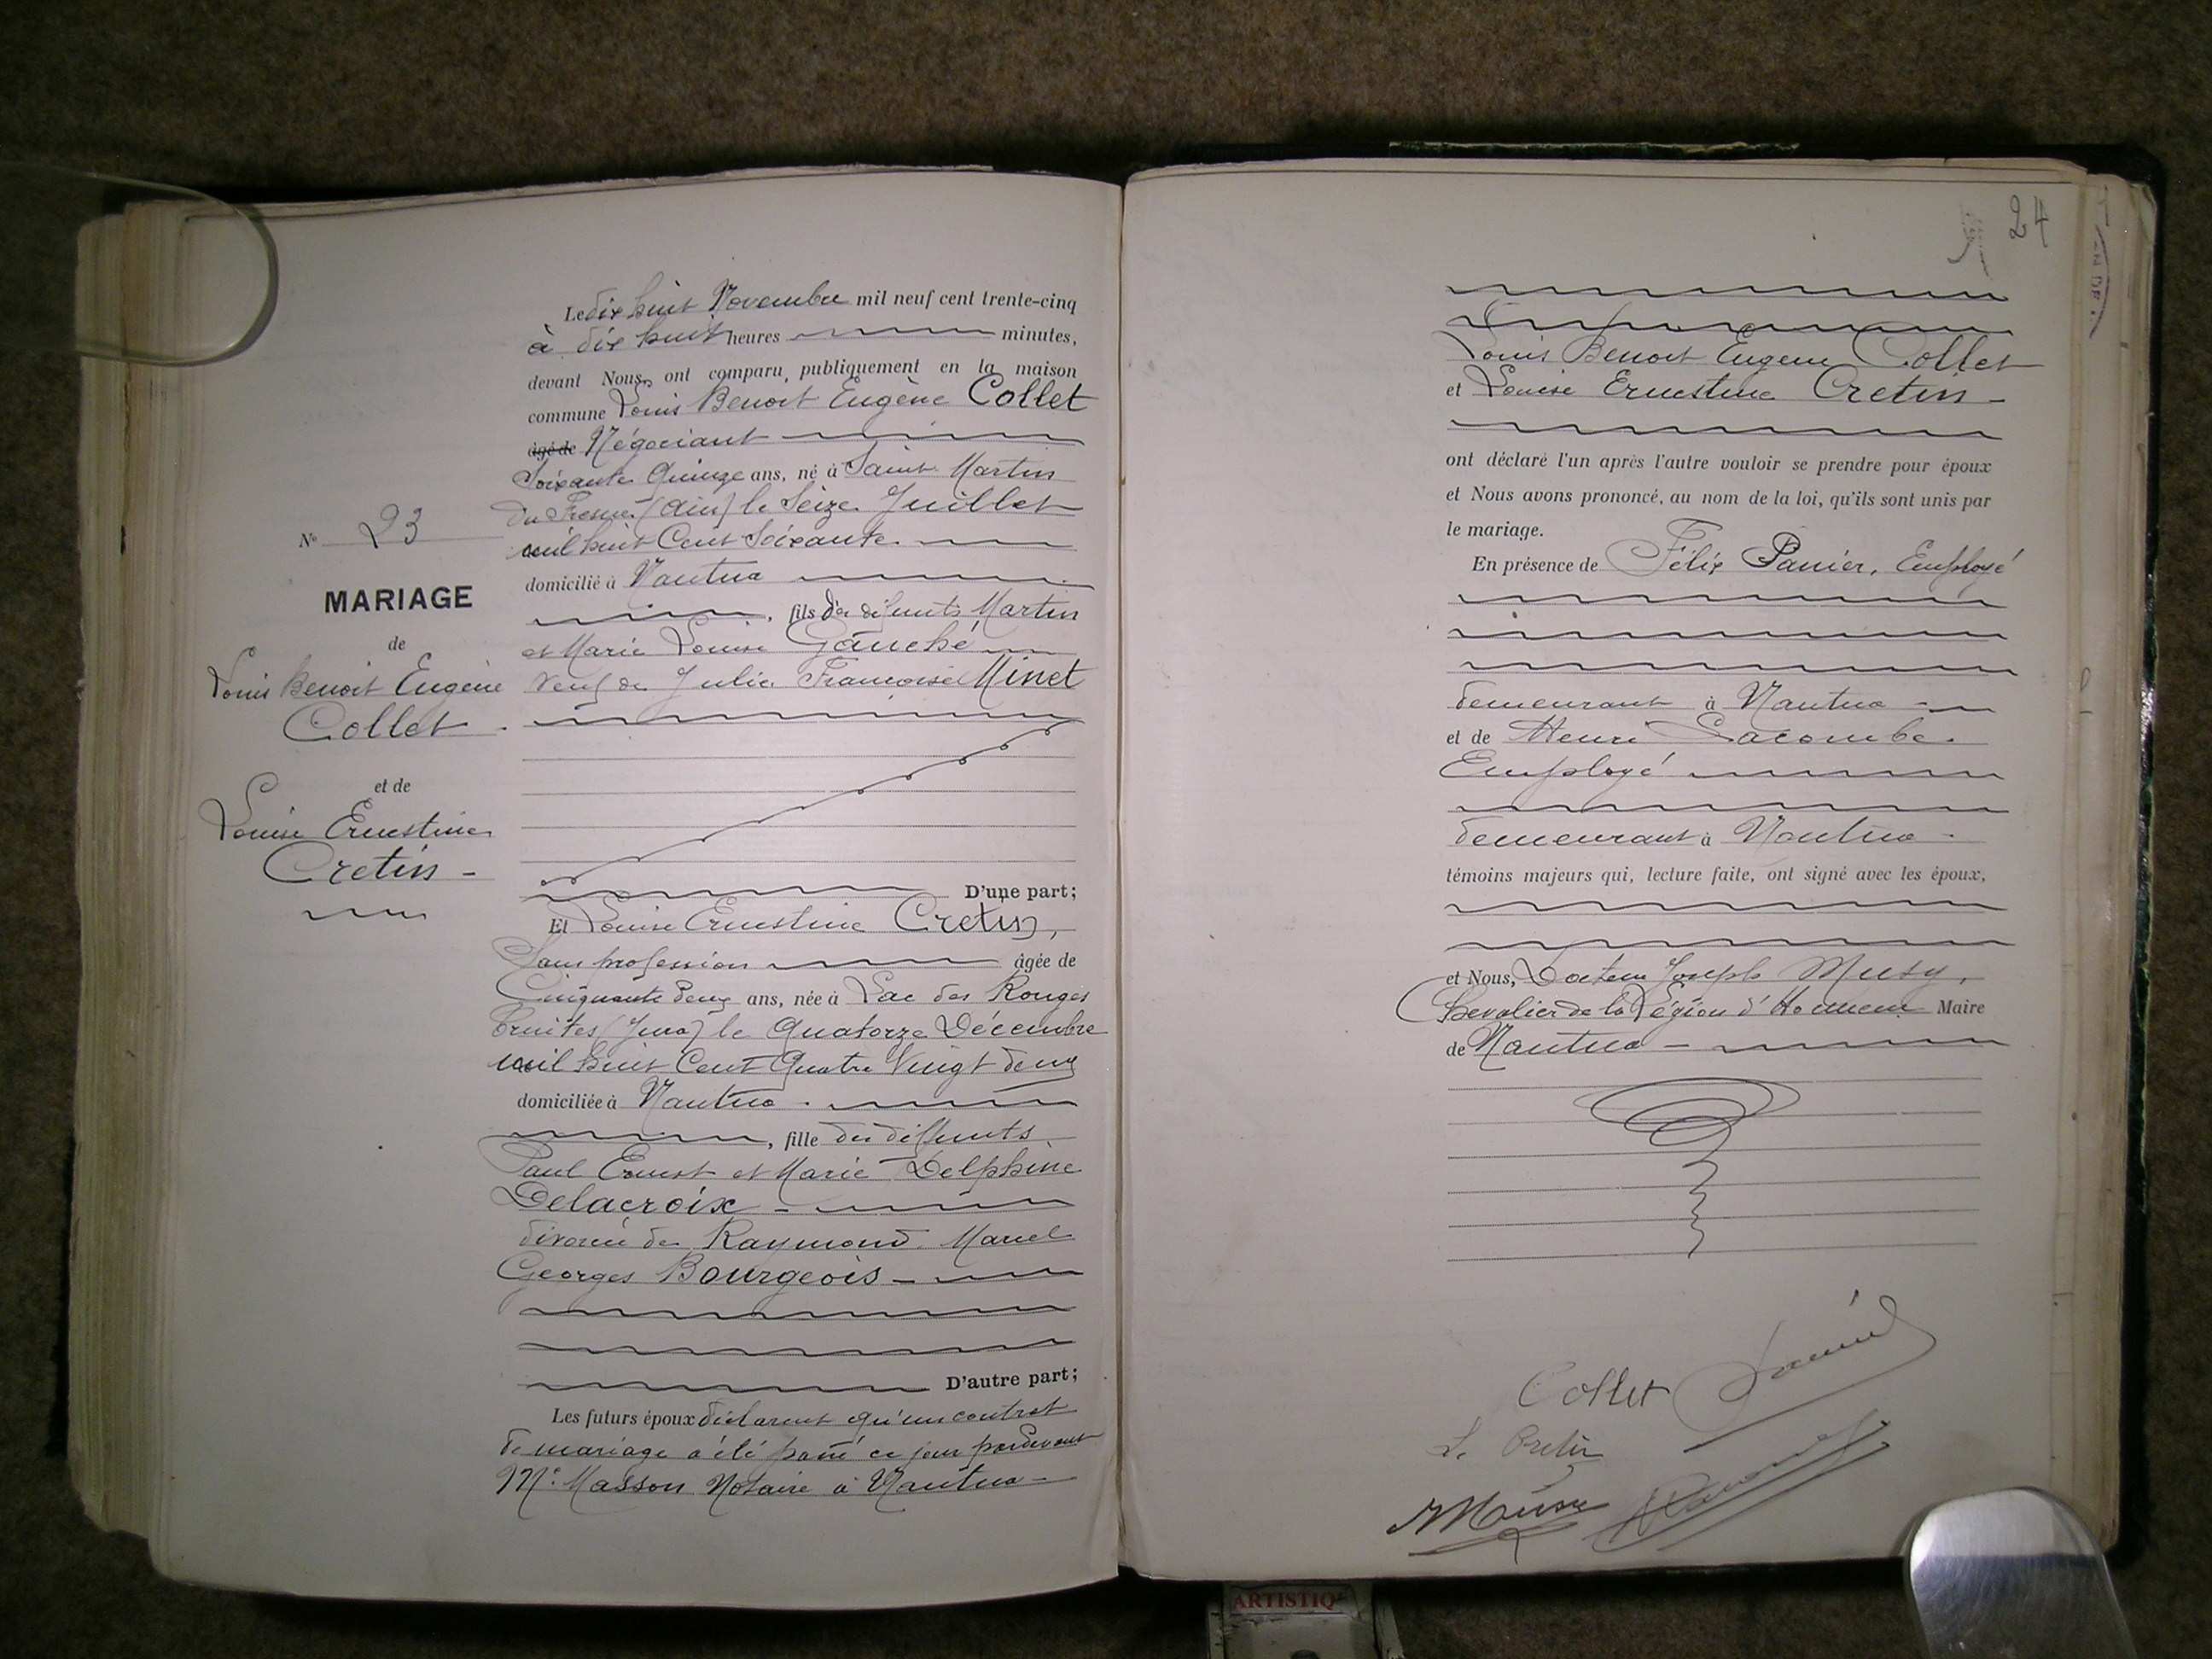 N° 23
MARIAGE
de
Louis Benoit Eugène
Collet
et de
Louise Ernestine
Cretin
Le dix huit Novembre mil neuf cent trente-cinq
à dix huit heures minutes,
devant Nous, ont comparu publiquement en la maison
commune Louis Benoit Eugène Collet
âgé de Négociant
Soixante Quinze ans, né à Saint Martin
du Fresne (Ain) le Seize Juillet
mil huit Cent Soixante
domicilié à Nantua
, fils des défunts Martin
et Marie Louise Gauché
Veuf de Julie Françoise Minet
D'une part;
Et Louise Ernestine Cretin,
Sans profession âgée de
Cinquante deux ans, née à Lac des Rouges
Truites (Jura) le Quatorze Décembre
mil huit Cent Quatre Vingt deux
domiciliée à Nantua
, fille des défunts
Paul Ernest et Marie Delphine
Delacroix
divorcée de Raymond Marcel
Georges Bourgeois
D'autre part;
Les futurs époux déclarent qu'un contrat
de mariage a été passé ce jour pardevant
Me Masson Notaire à Nantua
24
Louis Benoit Eugène Collet
et Louise Ernestine Cretin
ont déclaré l'un après l'autre vouloir se prendre pour époux
et Nous avons prononcé, au nom de la loi, qu'ils sont unis par
le mariage.
En présence de Félix Panier, Employé
demeurant à Nantua
et de Henri Lacombe
Employé
demeurant à Nantua
témoins majeurs qui, lecture faite, ont signé avec les époux,
et Nous, Docteur Joseph Musy,
Chevalier de la Légion d'Honneur Maire
de Nantua
Collet
L. Cretin
ARTISTIQ